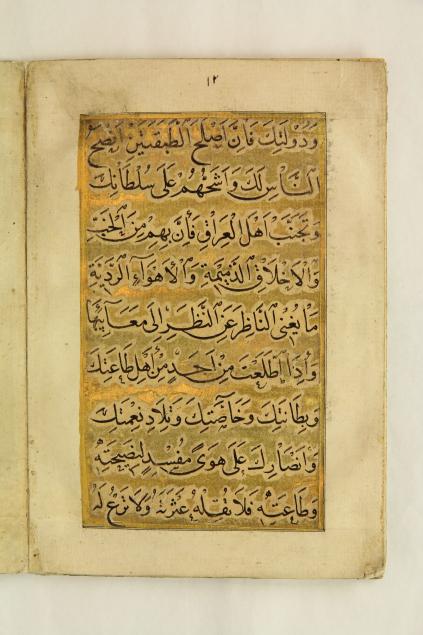 ١٢
وَدَوْلَتِكَ فَاِنَّ اَصْلَحَ الطَّبَقَتَيْنِ اَنْصَحُ
النَّاسِ لَكَ وَاَشَحُّهُمْ عَلَى سُلْطَانِكَ
وَتَجَنَّبْ اَهْلَ الْعِرَاقِ فَاِنَّ بِهِمْ مِنَ الْخِبِّ
وَالْاَخْلَاقِ الذَّمِيمَةِ وَالْاَهْوَآءِ الرَّدِيَّةِ
مَا يُغْنِى النَّاظِرَ عَنِ النَّظَرِ اِلَى مَعَآيِبِهَا
وَاِذَا اِطَّلَعْتَ مِنْ اَحَدٍ مِنْ اَهْلِ طَاعَتِكَ
وَبِطَانَتِكَ وَخَاصَّتِكَ وَتِلَادِ نِعْمَتِكَ
وَاَنْصَارِكَ عَلَى هَوًى مُفْسِدٍ لِنَصِيحَتِهِ
وَطَاعَتِهِ فَلَا تُقِلْهُ عَثْرَتَهُ وَلَا تَرْعَ لَهُ